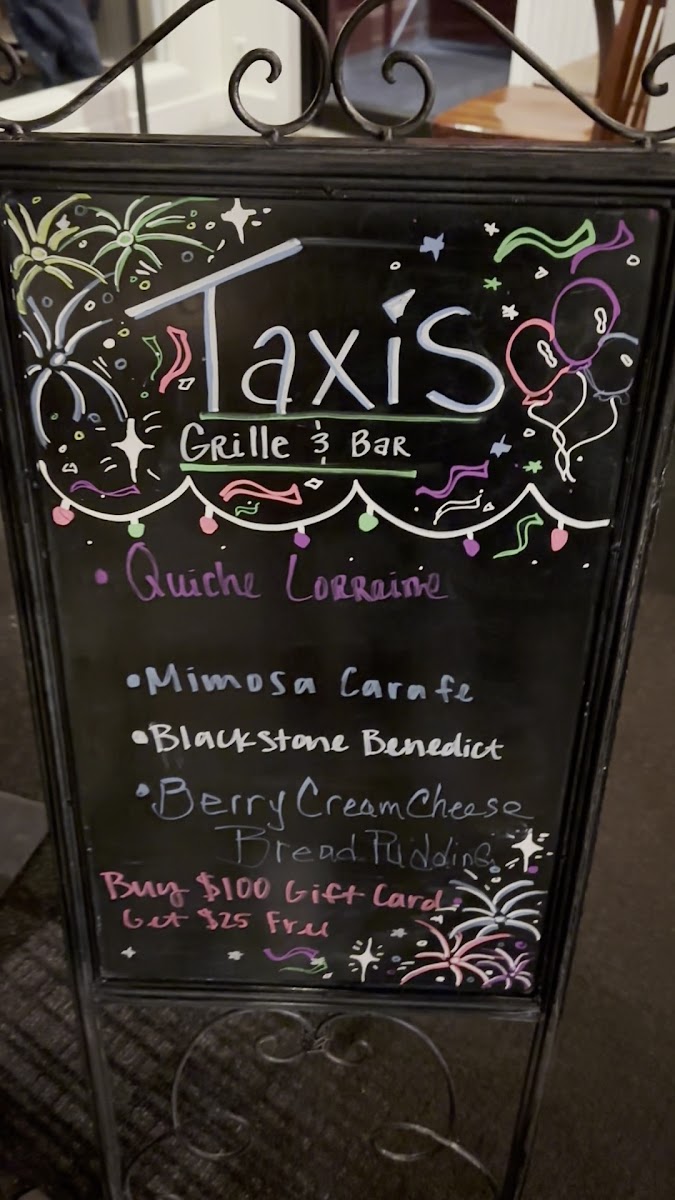 Taxis
Grille & Bar
• Quiche Lorraine
• Mimosa Carafe
• Blackstone Benedict
• Berry Cream Cheese
Bread Pudding
Buy $100 Gift Card
Get $25 Free